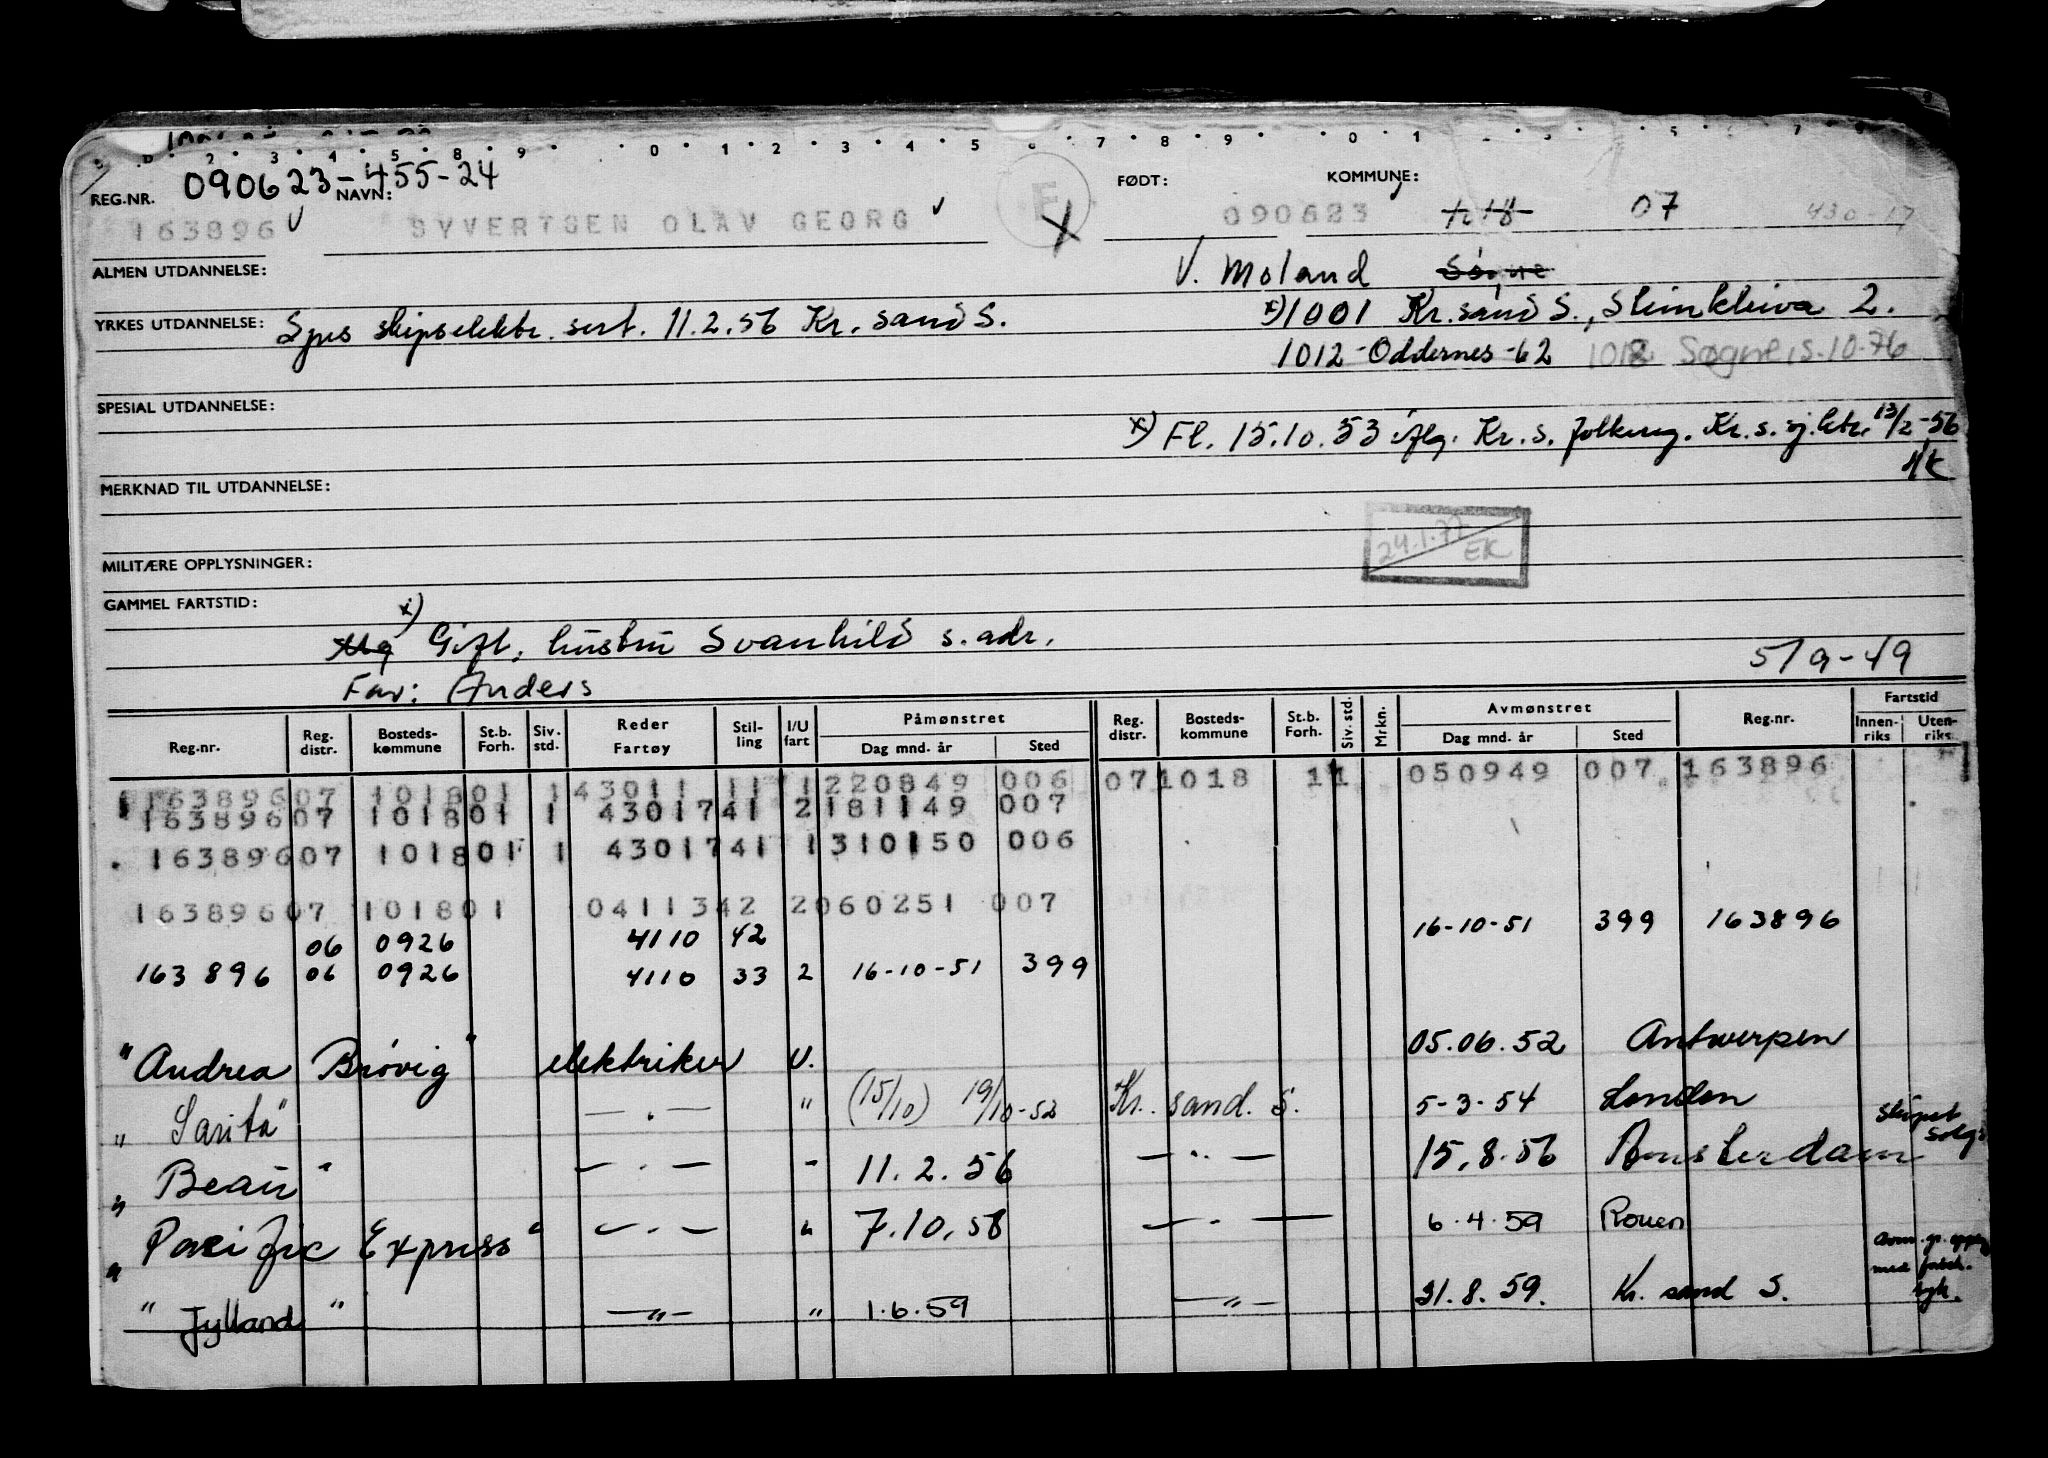 REG.NR. 090623-455-24 NAVN: FØDT: KOMMUNE:
163896 SYVERTSEN OLAV GEORG F 090623 1018 07 430-17
ALMEN UTDANNELSE: V. Moland Søgne
YRKES UTDANNELSE: Spes skipselektr. sert. 11.2.56 Kr. sand S. x) 1001 Kr.sand S., Steinkleiva 2.
1012-Oddernes-62 1018 Søgne, 5.10.76
SPESIAL UTDANNELSE:
x) Fl. 15.10.53 iflg. Kr. s. folkereg. Kr. s. sj. 13/2-56
MERKNAD TIL UTDANNELSE:
24.1.77 EK
MILITÆRE OPPLYSNINGER:
GAMMEL FARTSTID:
x)
Ug Gift, hustru Svanhild s. adr. 5/9-49
Far: Anders
Reg.nr. Reg. distr. Bosteds-kommune St.b. Forh. Siv. std. Reder Fartøy Stil-ling I/U fart Påmønstret Dag mnd. år Sted Reg. distr. Bosteds-kommune St.b. Forh. Siv. std. Mrkn. Avmønstret Dag mnd. år Sted Reg.nr. Fartstid Innen-riks Uten-riks
163896 07 1018 01 1 43011 11 1 220849 006 07 1018 11 050949 007 163896
163896 07 1018 01 1 43017 41 2 181149 007
163896 07 1018 01 1 43017 41 1 310150 006
163896 07 1018 01 04113 42 2 060251 007
06 0926 4110 42 16-10-51 399 163896
163896 06 0926 4110 33 2 16-10-51 399
"Andrea Brøvig" elektriker U. 05.06.52 Antwerpen
"Sarita" — . — " (15/10) 19/10-52 Kr. sand. S. 5-3-54 London skipet solgt
"Beau" — . — " 11.2.56 — " — 15.8.56 Amsterdam
"Pacific Express" — . — " 7.10.58 — . — 6.4.59 Rouen
"Jylland" — " — " 1.6.59 — " — 31.8.59. Kr. sand S.